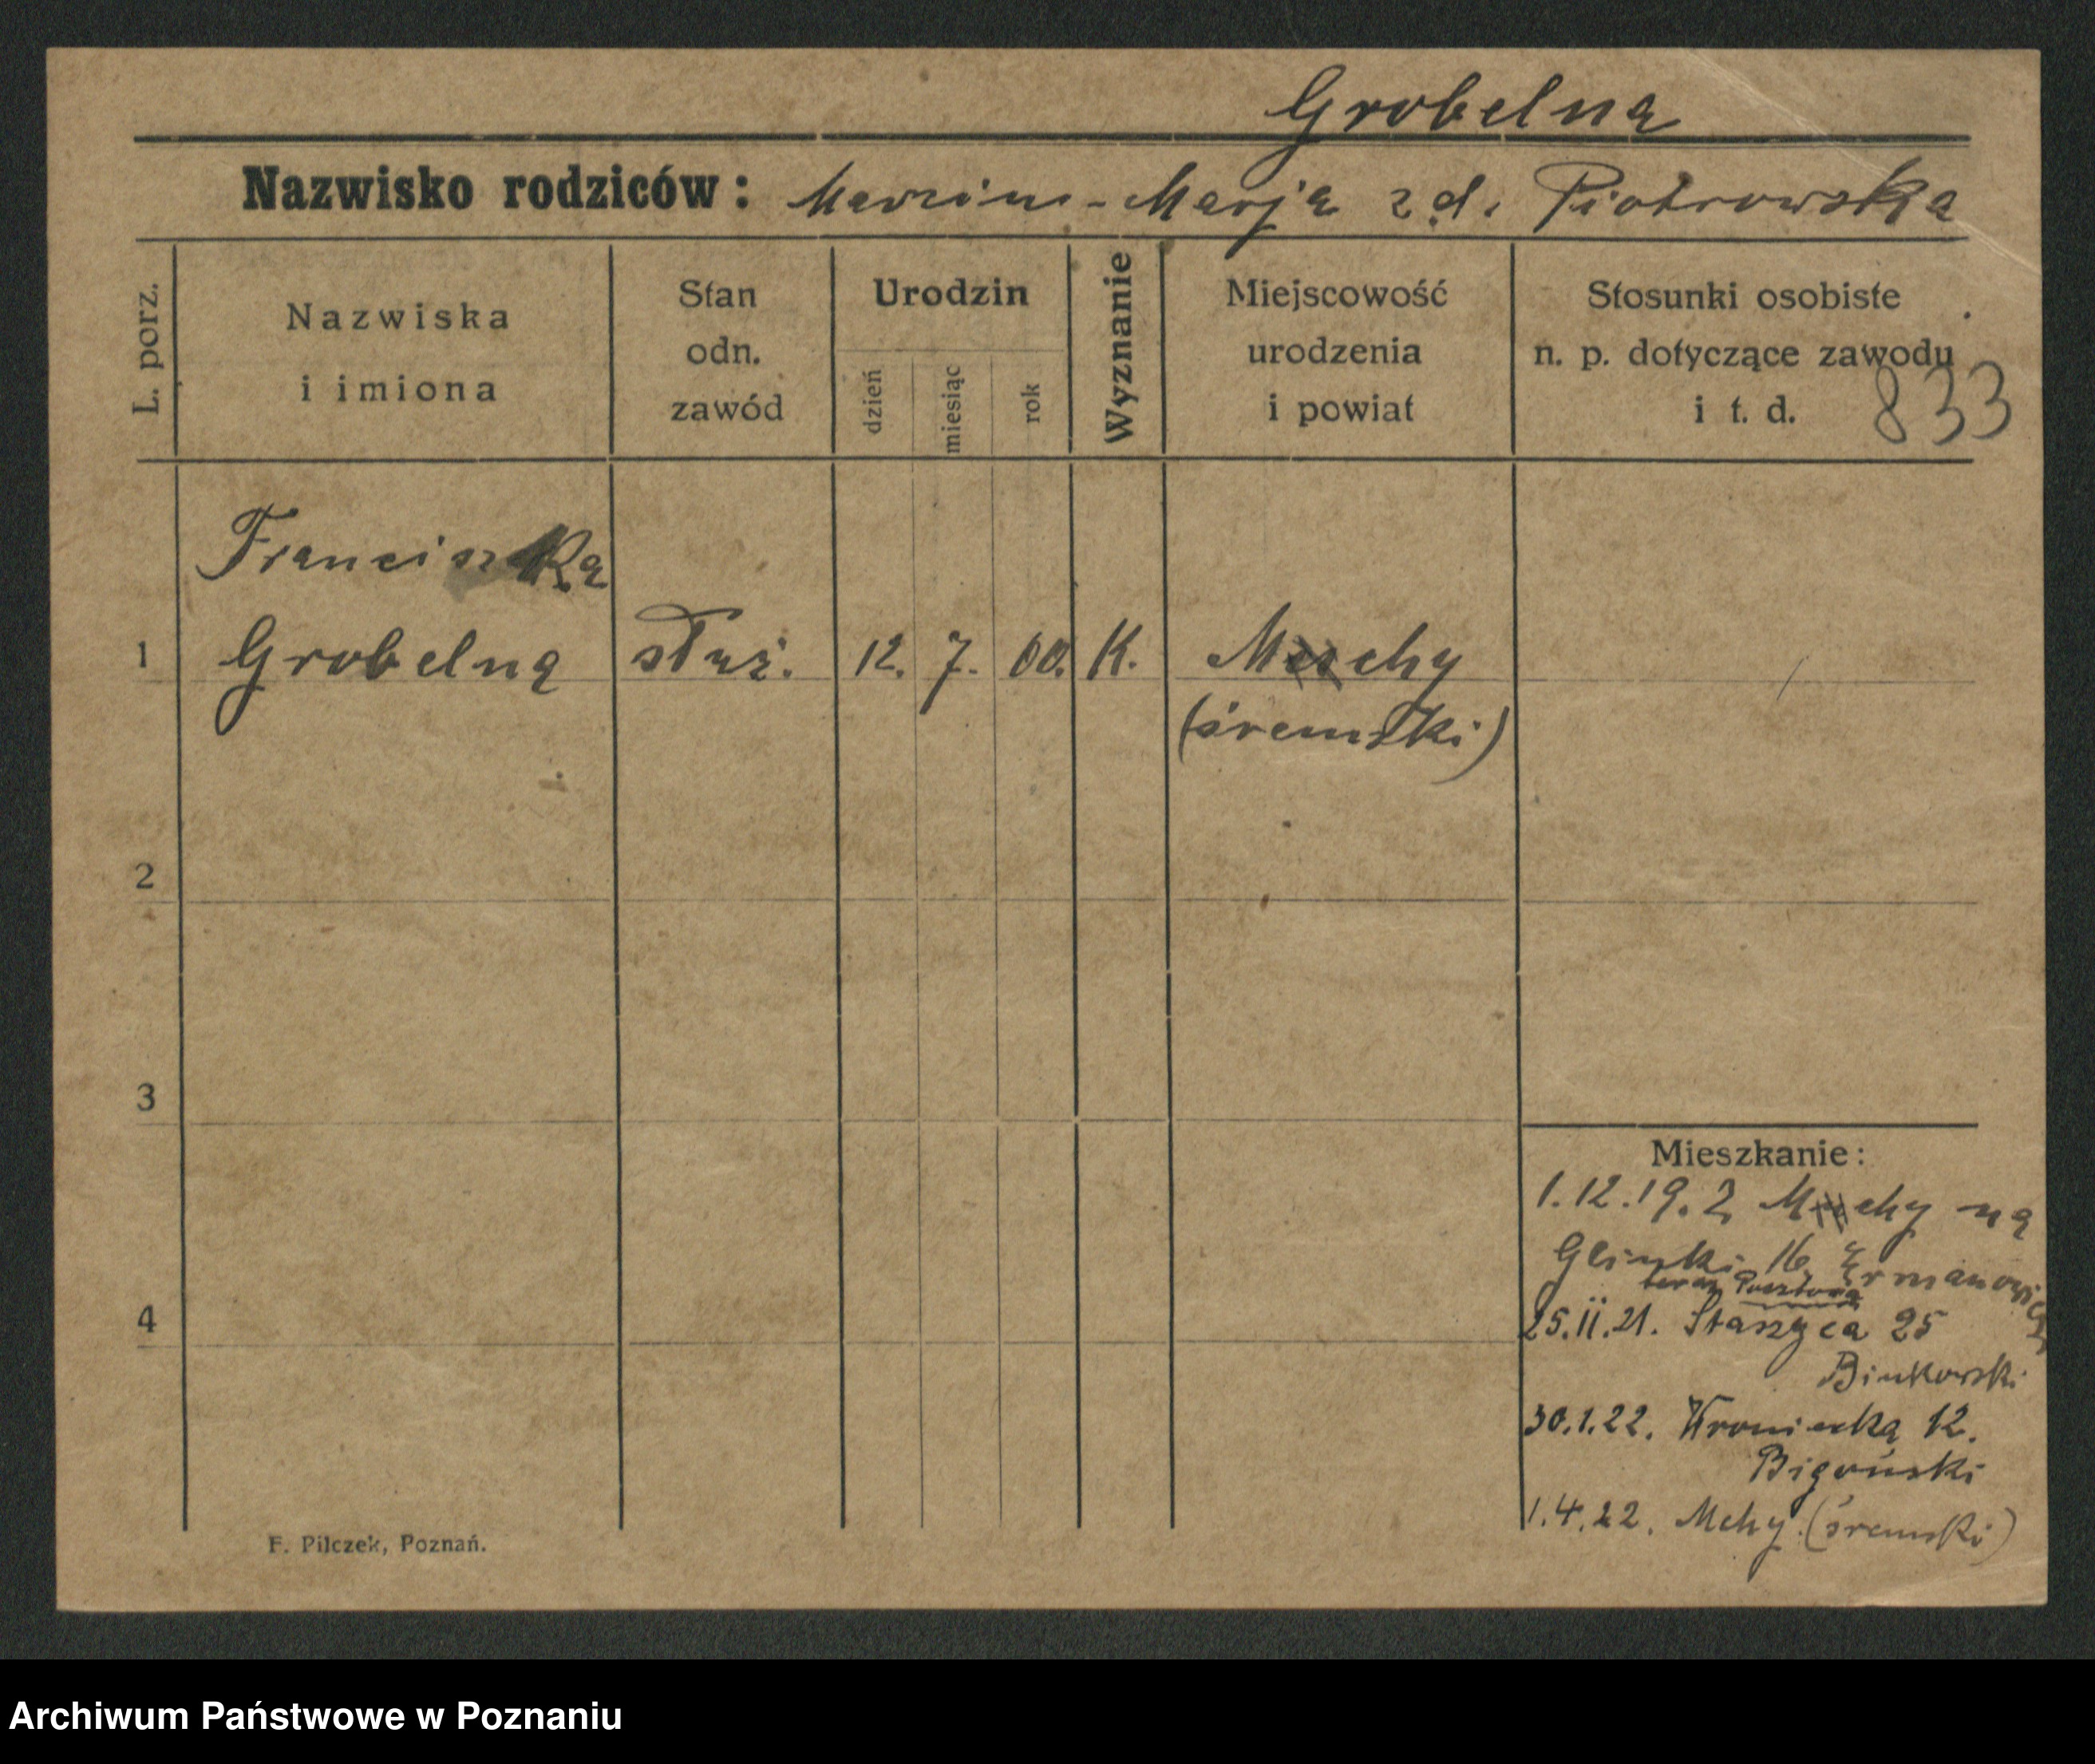 Grobelna
Nazwisko rodziców: Marcin - Marja z d. Piotrowska
L. porz.
Nazwiska
i imiona
Stan
odn.
zawód
Urodzin
dzień
miesiąc
rok
Wyznanie
Miejscowość
urodzenia
i powiat
Stosunki osobiste
n. p. dotyczące zawodu
i t. d.
833
Franciszka
1 Grobelna służ. 12. 7. 00. K. Mchy
(śremski)
2
3
4
Mieszkanie:
1.12.19. z Mchy na
Glinki 16
teraz Pocztowa
25.II.21. Staszyca 25
Binkowski
30.1.22. Wroniecka 12.
1.4.22. Mchy (śremski)
F. Pilczek, Poznań.
Archiwum Państwowe w Poznaniu